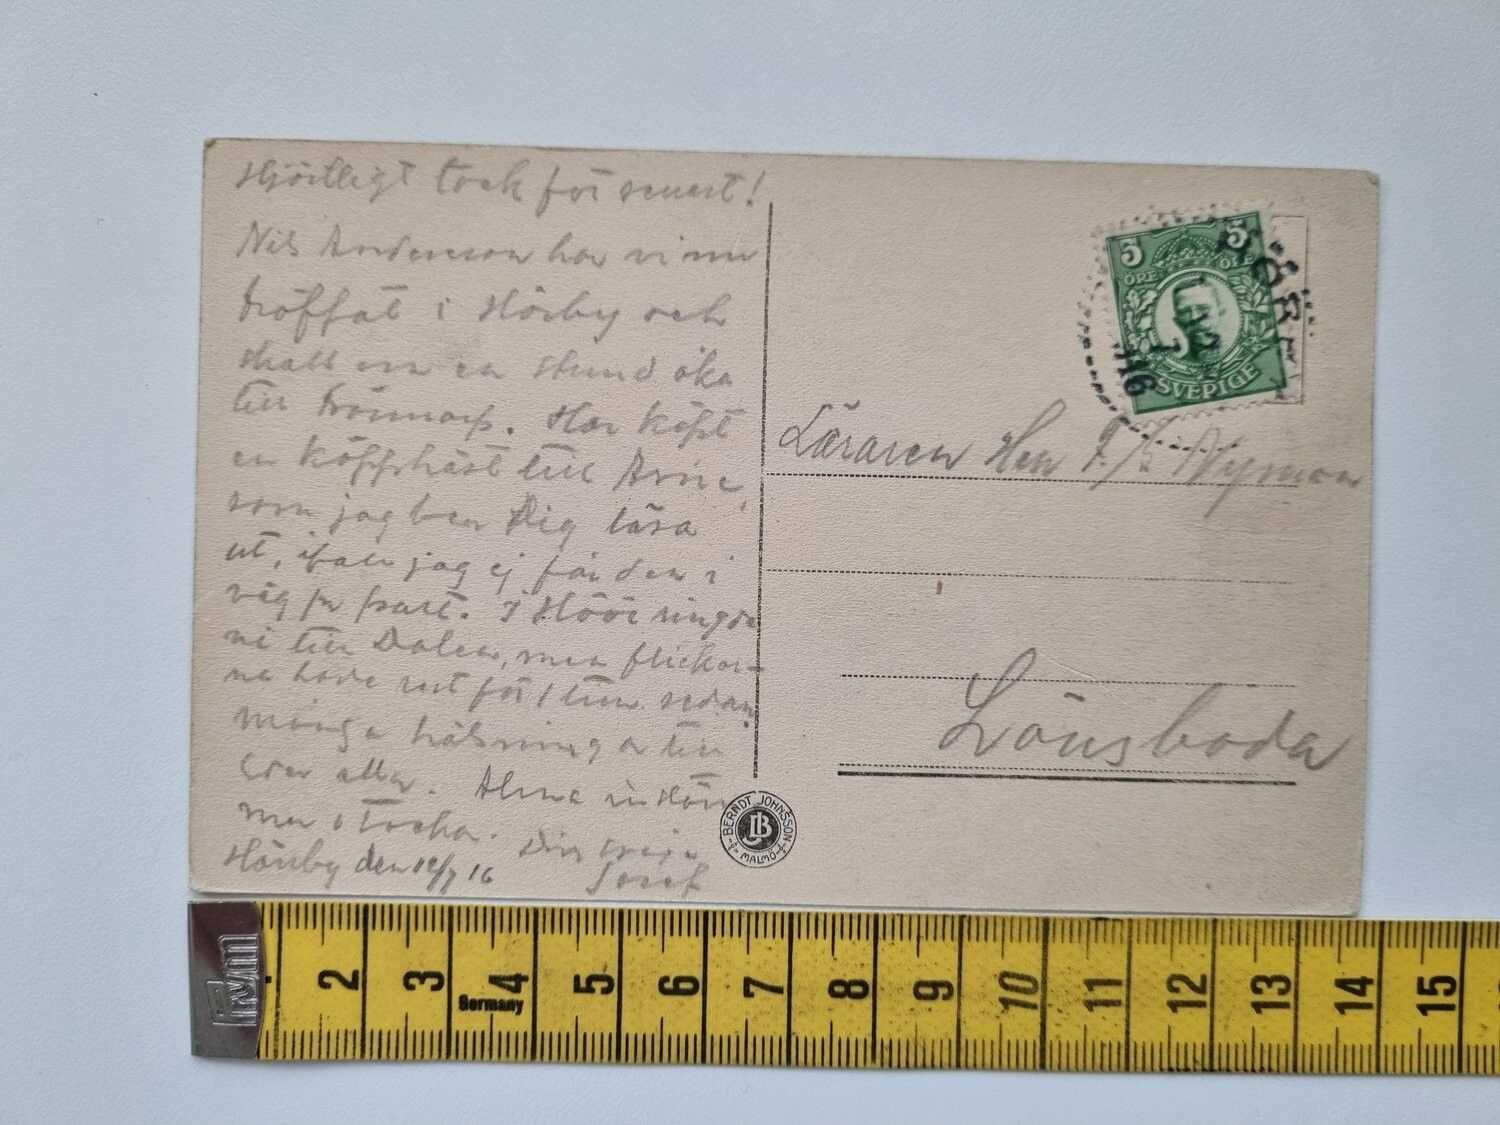 Hjärtligt tack för senast!
Nils Andersson har vi nu
träffat i Hörby och
skall om en stund åka
till Trännarp. Har köpt
en käpphäst till Arne,
som jag ber Dig läsa
ut, ifall jag ej får den i
väg pr frakt. I Höör ringde
vi till Dalen, men flickor-
na hade rest för 1 tim. sedan.
Många hälsningar till
Eder alla. Alma
Din
Josef
Hörby den 12/7 16
5 5
ÖRE ÖRE
SVERIGE
HÖRBY
12 7
16
Läraren Herr F. Nyman
Lönsboda
BERNDT JOHNSSON
JB
MALMÖ
PRYM
2 3 4 5 6 7 8 9 10 11 12 13 14 15
Germany